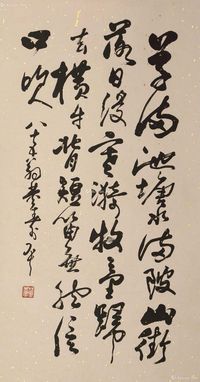 草滿池塘水滿陂山銜
落日浸寒漪牧童歸
去橫牛背短笛無腔信
口吹
八十